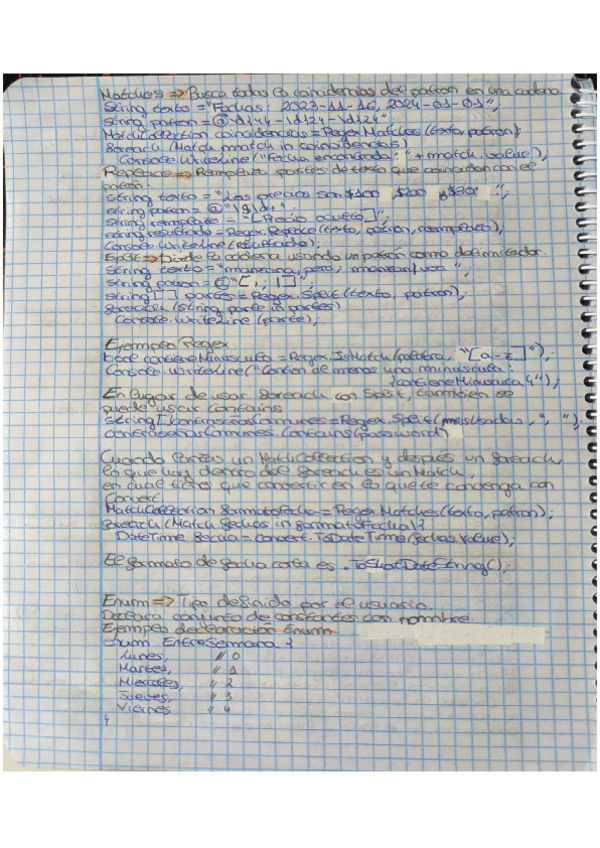 Matches => Busca todas las coincidencias del patron en una cadena
String texto = "Fechas: 2023-11-16, 2024-01-01";
String patron = @"\d{4}-\d{2}-\d{2}";
MatchCollection coincidencias = Regex.Matches(texto, patron);
foreach (Match match in coincidencias)
Console.WriteLine("Fecha encontrada: " + match.value);
Replace => Remplaza partes de texto que coincidan con el
patrón.
String texto = "Los precios son $100, $200 y $301";
string patron = @"\$\d+";
string reemplazo = "[Precio oculto]";
string resultado = Regex.Replace(texto, patron, reemplazo);
Console.WriteLine(resultado);
Split => Divide la cadena usando un patrón como delimitador.
String texto = "manzana, pera, manzana, uva";
String patron = @"[,;|]";
string[] partes = Regex.Split(texto, patron);
foreach (string parte in partes)
Console.WriteLine(parte);
Ejemplo Regex
bool contieneMinuscula = Regex.IsMatch(palabra, "[a-z]");
Console.WriteLine("Contien al menos una minuscula:
{contieneMinuscula}");
En lugar de usar foreach con Split, tambien se
puede usar contains
string[] contraseñasComunes = Regex.Split(masUsadas, ", ");
contraseñasComunes.Contains(password)
Cuando lanzas un MatchCollection y después un foreach,
lo que hay dentro del foreach es un Match,
en cual tienes que convertir en lo que te convenga con
Convert
MatchCollection formatoFecha = Regex.Matches(texto, patron);
foreach (Match fechas in formatoFecha){
DateTime fecha = convert.ToDateTime(fechas.value);
El formato de fecha corta es .ToShortDateString();
Enum => Tipo definido por el usuario.
Declara conjunto de constantes con nommbre
Ejemplo declaración Enum
enum EntreSemana {
Lunes, // 0
Martes, // 1
Miercoles, // 2
Jueves, // 3
Viernes // 4
}